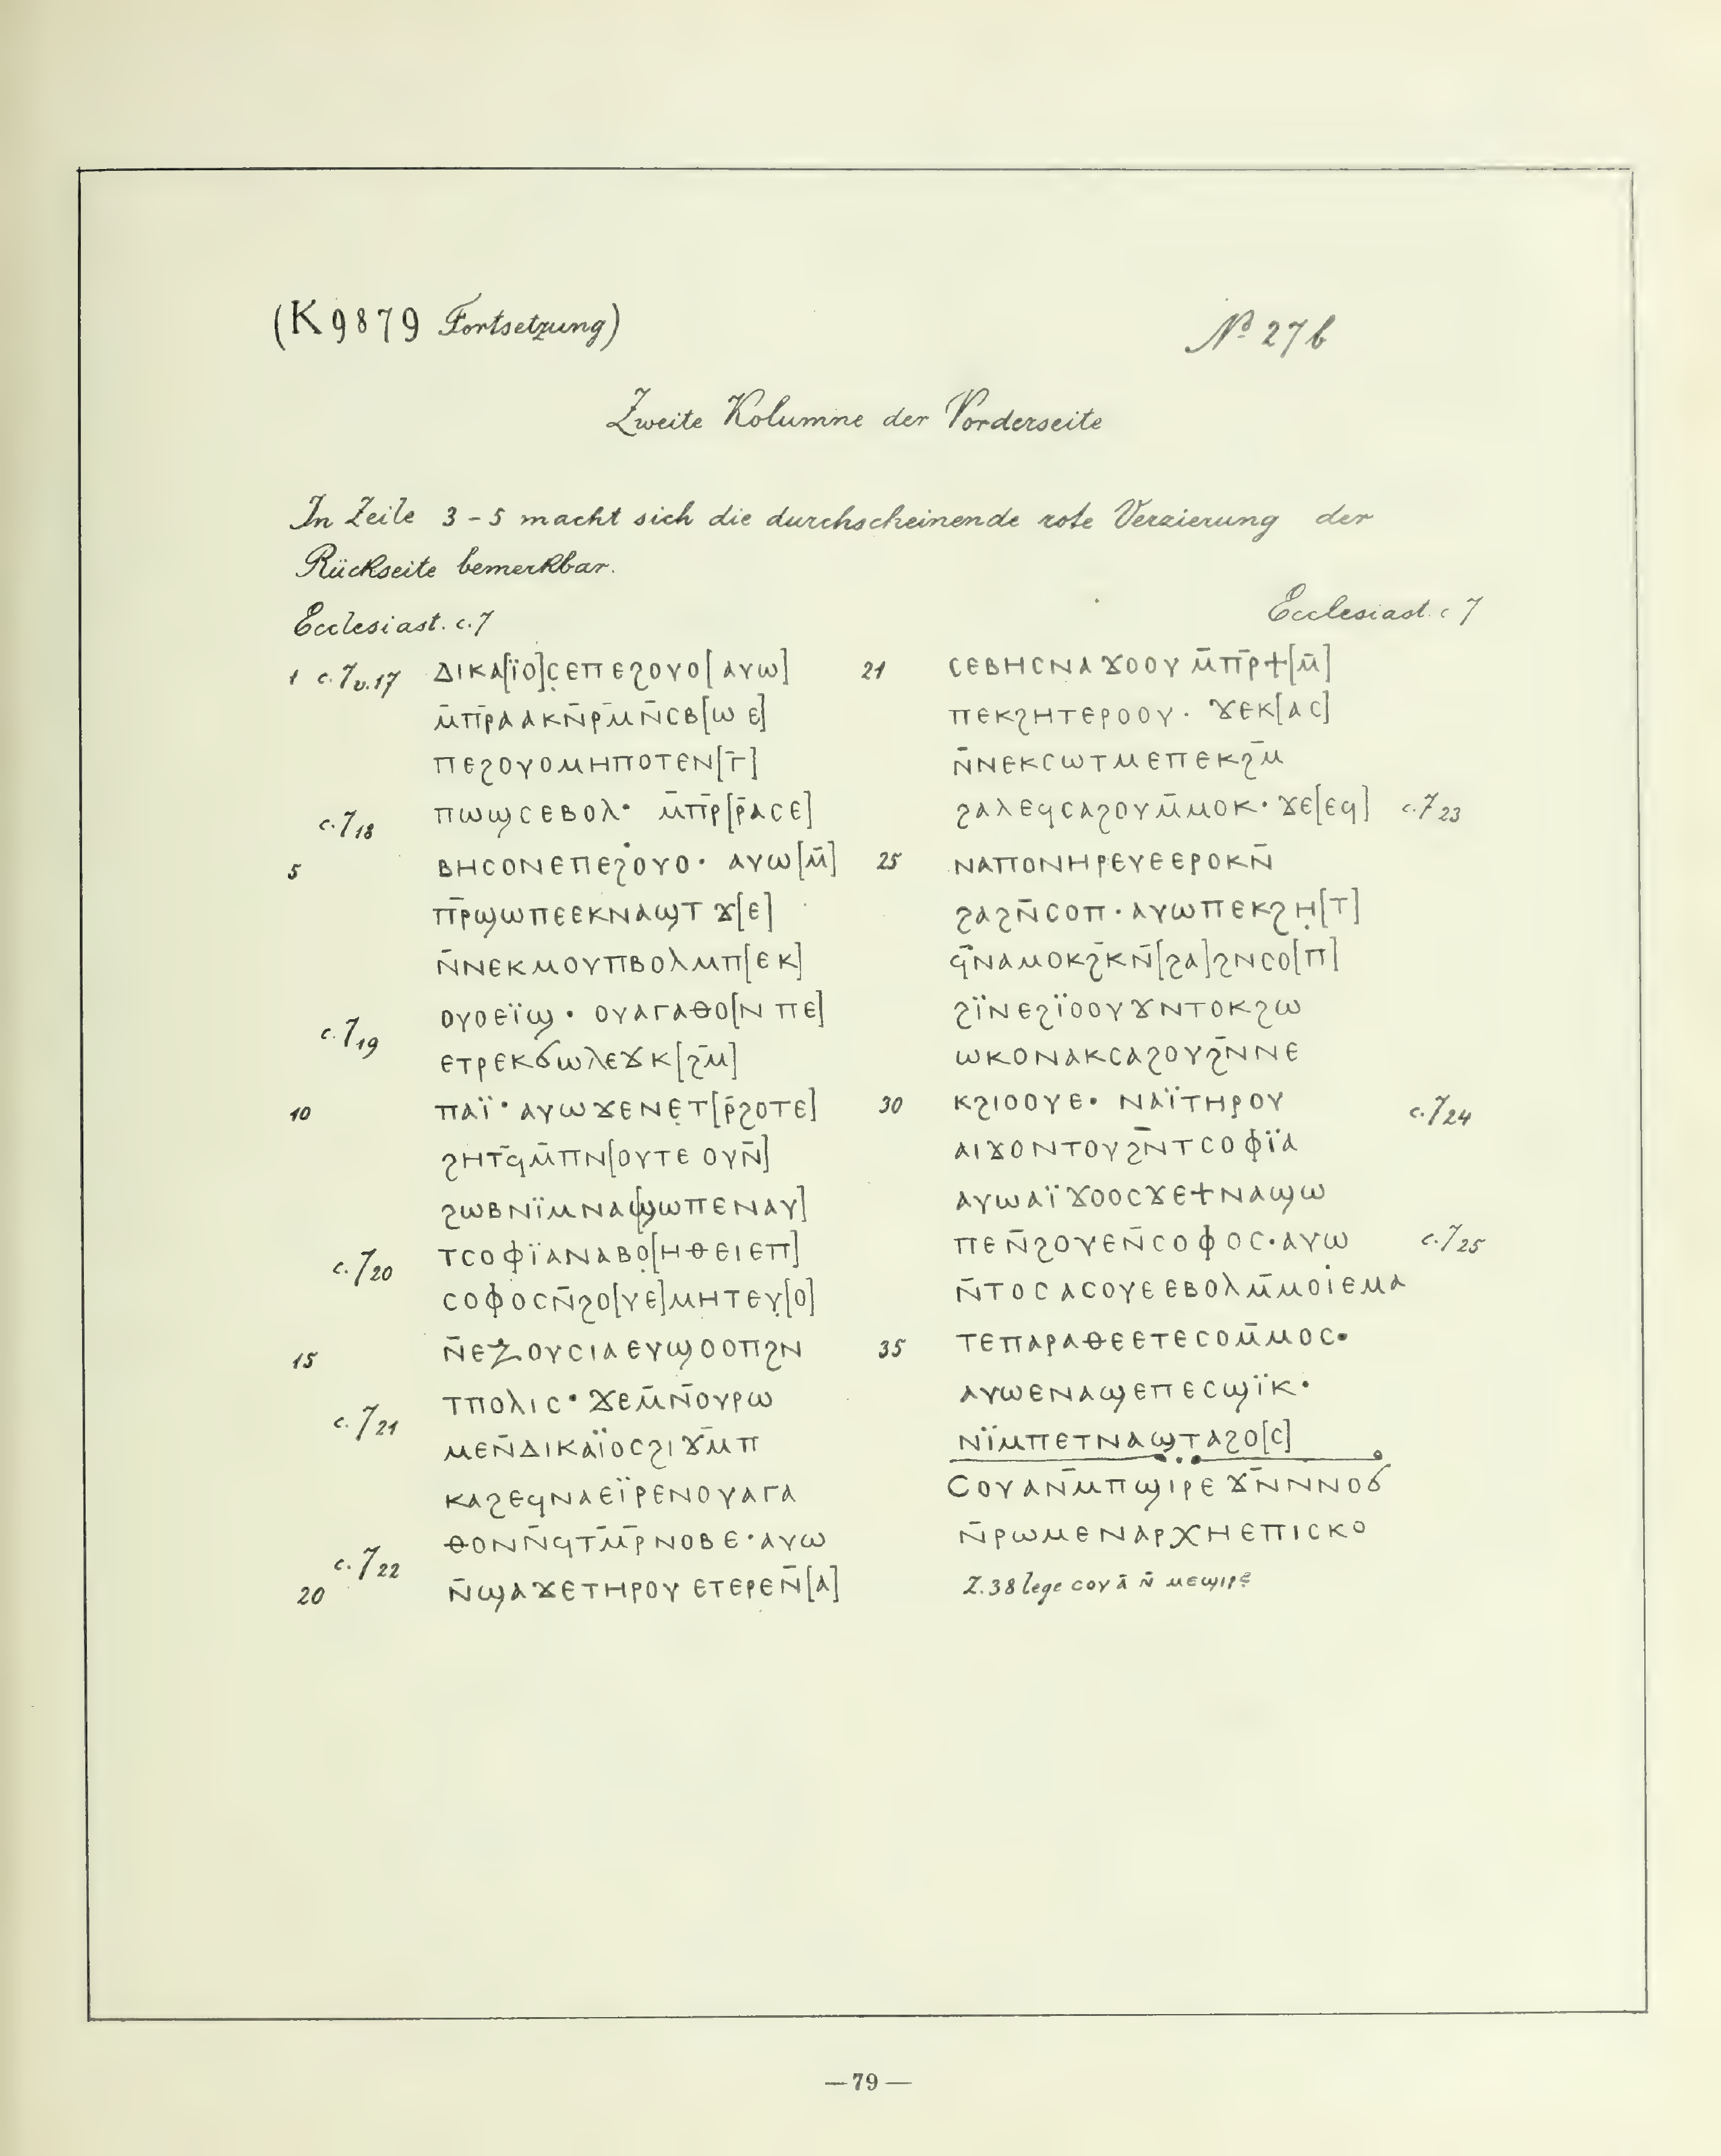 (K 9879 Fortsetzung)
No 27 b
Zweite Kolumne der Vorderseite
In Zeile 3-5 macht sich die durchscheinende rote Verzierung der
Rückseite bemerkbar.
Ecclesiast. c. 7
1 c. 7 v. 17 ⲇⲓⲕⲁ[ⲓ̈ⲟ]ⲥ̣ⲉⲡⲉϩⲟⲩⲟ[ ⲁⲩⲱ]
ⲙ̄ⲡ̄ⲣⲁⲁⲕⲛ̄ⲣ̄ⲙⲛ̄ⲥⲃ[ⲱ ⲉ]
ⲡⲉϩⲟⲩⲟⲙⲏⲡⲟⲧⲉⲛ[ⲅ̄]
c. 7 18 ⲡⲱϣⲥⲉⲃⲟⲗ· ⲙ̄ⲡ̄ⲣ[ⲣ̄ⲁⲥⲉ]
5 ⲃⲏⲥⲟⲛⲉⲡⲉϩⲟⲩⲟ· ⲁⲩⲱ[ⲙ̄]
ⲡ̄ⲣϣⲱⲡⲉⲉⲕⲛⲁϣⲧ ϫ[ⲉ]
ⲛ̄ⲛⲉⲕⲙⲟⲩⲡⲃⲟⲗⲙⲡ[ⲉⲕ]
ⲟⲩⲟⲉⲓ̈ϣ· ⲟⲩⲁⲅⲁⲑⲟ[ⲛ ⲡⲉ]
c. 7 19 ⲉⲧⲣⲉⲕϭⲱⲗⲉϫⲕ[ϩ̄ⲙ]
10 ⲡⲁⲓ̈· ⲁⲩⲱϫⲉⲛⲉ̣ⲧ[ⲣ̄ϩⲟⲧⲉ]
ϩⲏⲧϥ̄ⲙ̄ⲡⲛ[ⲟⲩⲧⲉ ⲟⲩⲛ̄]
ϩⲱⲃⲛⲓ̈ⲙⲛⲁ[ϣⲱⲡⲉⲛⲁⲩ]
c. 7 20 ⲧⲥⲟⲫⲓ̈ⲁⲛⲁⲃⲟ̣[ⲏⲑⲉⲓⲉⲡ]
ⲥⲟⲫⲟⲥⲛ̄ϩⲟ[ⲩⲉ]ⲙⲏⲧⲉⲩ̣[ⲟ]
15 ⲛ̄ⲉⲝⲟⲩⲥⲓⲁⲉⲩϣⲟⲟⲡϩⲛ
c. 7 21 ⲧⲡⲟⲗⲓⲥ· ϫⲉⲙ̄ⲛ̄ⲟⲩⲣⲱ
ⲙⲉⲛ̄ⲇⲓⲕⲁⲓ̈ⲟⲥϩⲓϫ̄ⲙⲡ
ⲕⲁϩⲉϥⲛⲁⲉⲓ̈ⲣⲉⲛⲟⲩⲁⲅⲁ
ⲑⲟⲛⲛ̄ϥⲧⲙ̄ⲣ̄ⲛⲟⲃⲉ·ⲁⲩⲱ
20 c. 7 22 ⲛ̄ϣⲁϫⲉⲧⲏⲣⲟⲩ ⲉⲧⲉⲣⲉⲛ̄[ⲁ]
Ecclesiast. c 7
21 ⲥⲉⲃⲏⲥⲛⲁϫⲟⲟⲩ ⲙ̄ⲡ̄ⲣϯ[ⲙ̄]
ⲡⲉⲕϩⲏⲧⲉⲣⲟⲟⲩ· ϫⲉⲕ[ⲁⲥ]
ⲛ̄ⲛⲉⲕⲥⲱⲧⲙⲉⲡⲉⲕϩ̄ⲙ
ϩⲁⲗⲉϥⲥⲁϩⲟⲩⲙ̄ⲙⲟⲕ· ϫⲉ[ⲉϥ] c. 7 23
25 ⲛⲁⲡⲟⲛⲏⲣⲉⲩⲉⲉⲣⲟⲕⲛ̄
ϩⲁϩⲛ̄ⲥⲟⲡ·ⲁⲩⲱⲡⲉⲕϩⲏ̣[ⲧ]
ϥ̄ⲛⲁⲙⲟⲕϩ̄ⲕⲛ̄[ϩⲁ]ϩⲛⲥⲟ[ⲡ]
ϩⲓ̈ⲛⲉϩⲓ̈ⲟⲟⲩϫⲛⲧⲟⲕϩⲱ
ⲱⲕⲟⲛⲁⲕⲥⲁϩⲟⲩϩ̄ⲛⲛⲉ
30 ⲕϩⲓⲟⲟⲩⲉ· ⲛⲁⲓ̈ⲧⲏⲣⲟⲩ c. 7 24
ⲁⲓϫⲟⲛⲧⲟⲩϩ̄ⲛⲧⲥⲟⲫⲓ̈ⲁ
ⲁⲩⲱⲁⲓ̈ϫⲟⲟⲥϫⲉϯⲛⲁϣⲱ
ⲡⲉⲛ̄ϩⲟⲩⲉⲛ̄ⲥⲟⲫⲟⲥ·ⲁⲩⲱ c. 7 25
ⲛ̄ⲧⲟⲥⲁⲥⲟⲩⲉⲉⲃⲟⲗⲙ̄ⲙⲟⲓ̈ⲉⲙⲁ
35 ⲧⲉⲡⲁⲣⲁⲑⲉⲉⲧⲉⲥⲟⲙ̄ⲙⲟⲥ·
ⲁⲩⲱⲉⲛⲁϣⲉⲡⲉⲥϣⲓ̈ⲕ·
ⲛⲓ̈ⲙⲡⲉⲧⲛⲁϣⲧⲁϩⲟ[ⲥ]
ⲥⲟⲩⲁⲛ̄ⲙⲡϣⲓⲣⲉ ϫ̄ⲛⲛⲛⲟϭ
ⲛ̄ⲣⲱⲙⲉⲛⲁⲣⲭⲏⲉⲡⲓⲥⲕⲟ
Z. 38 lege ⲥⲟⲩ ⲁ̄ ⲛ̄ ⲙⲉϣⲓⲣⲉ
— 79 —